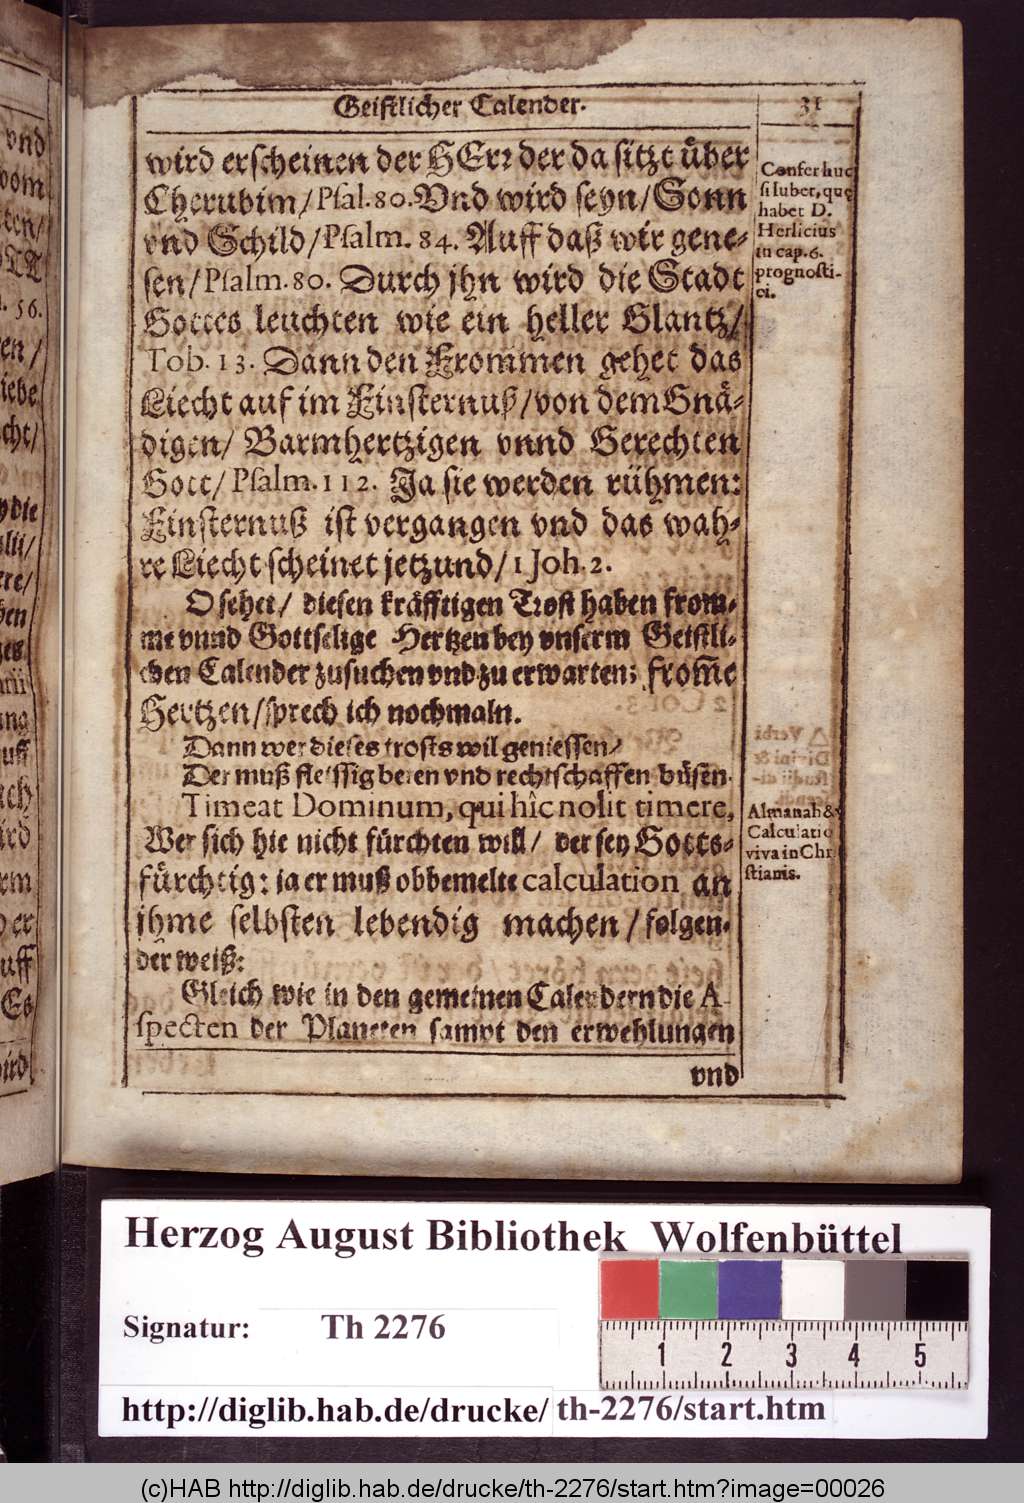 Geistlicher Calender. 31
wird erscheinen der HErr der da sitzt über
Cherubim/ Psal. 80. Vnd wird seyn/ Sonn
vnd Schild/ Psalm. 84. Auff daß wir gene-
sen/ Psalm. 80. Durch jhn wird die Stadt
Gottes leuchten wie ein heller Glantz/
Tob. 13. Dann den Frommen gehet das
Liecht auf im Finsternuß/ von dem Gnä-
digen/ Barmhertzigen vnnd Gerechten
Gott/ Psalm. 112. Ja sie werden rühmen:
Finsternuß ist vergangen vnd das wah-
re Liecht scheinet jetzund/ 1 Joh. 2.
O sehet/ diesen kräfftigen Trost haben from-
me vnnd Gottselige Hertzen bey vnserm Geistli-
chen Calender zusuchen vnd zu erwarten; from̃e
Hertzen/ sprech ich nochmaln.
Dann wer dieses trosts wil geniessen/
Der muß fleissig beten vnd rechtschaffen büsen.
Timeat Dominum, qui hîc nolit timere,
Wer sich hie nicht fürchten will/ der sey Gotts-
fürchtig: ja er muß obbemelte calculation an
jhme selbsten lebendig machen/ folgen-
der weiß:
Gleich wie in den gemeinen Calendern die A-
specten der Planeten sampt den erwehlungen
vnd
Confer huc
si lubet, quę
habet D.
Herlicius
in cap. 6.
prognosti-
ci.
Almanah &
Calculatio
viva in Chri
stianis.
vnd
vom
ten/
56.
en/
iebe
cht/
die
ere/
uff
rm
er
uff
Es
Herzog August Bibliothek Wolfenbüttel
Signatur: Th 2276
1 2 3 4 5
http://diglib.hab.de/drucke/ th-2276/start.htm
(c)HAB http://diglib.hab.de/drucke/th-2276/start.htm?image=00026